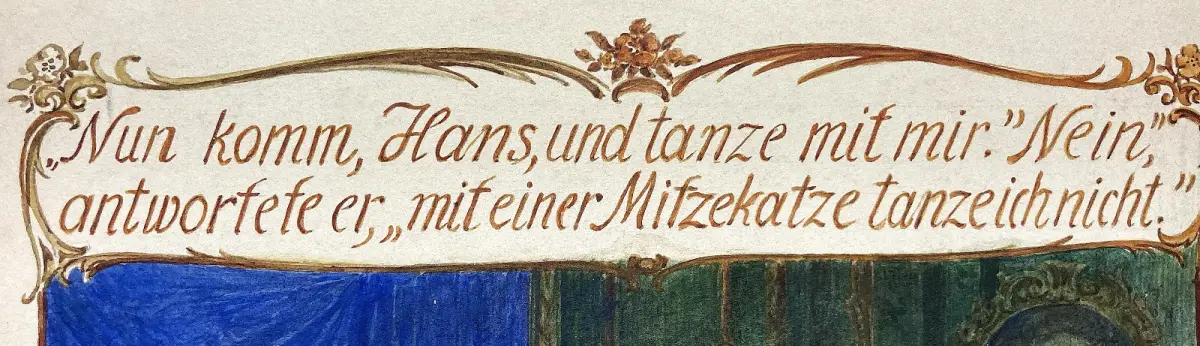 „Nun komm, Hans, und tanze mit mir.” Nein,”
antwortete er, „mit einer Mitzekatze tanze ich nicht.”